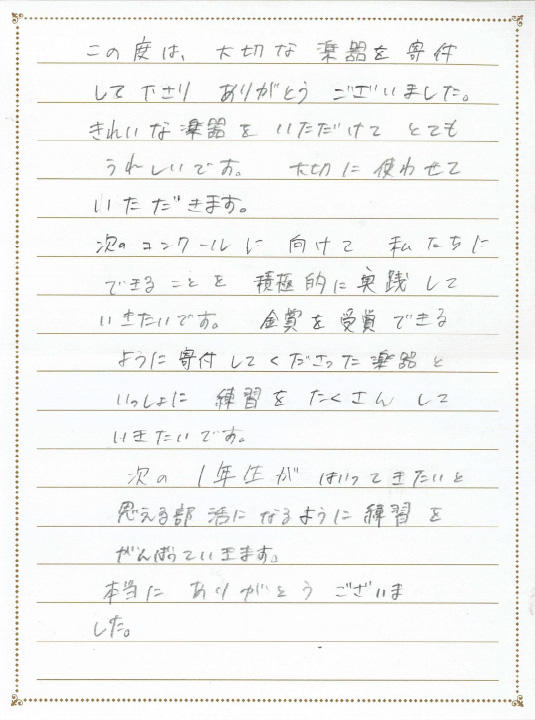 この度は、大切な楽器を寄付
して下さり ありがとう ございました。
きれいな楽器を いただけて とても
うれしいです。 大切に 使わせて
いただきます。
次のコンクールに 向けて 私たちに
できることを 積極的に実践して
いきたいです。 金賞を受賞できる
ように寄付してくださった楽器と
いっしょに 練習をたくさんして
いきたいです。
次の 1年生が はいってきたいと
思える部活になるように練習を
がんばっていきます。
本当に ありがとう ございま
した。